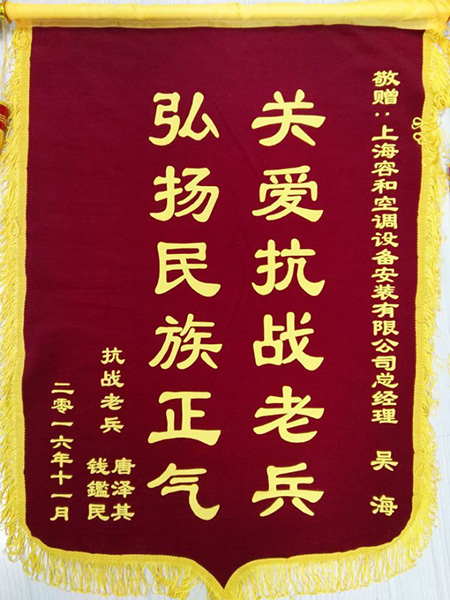 敬赠:上海容和空调设备安装有限公司总经理 吴海
关爱抗战老兵
弘扬民族正气
抗战老兵 唐泽其
钱鑑民
二零一六年十一月